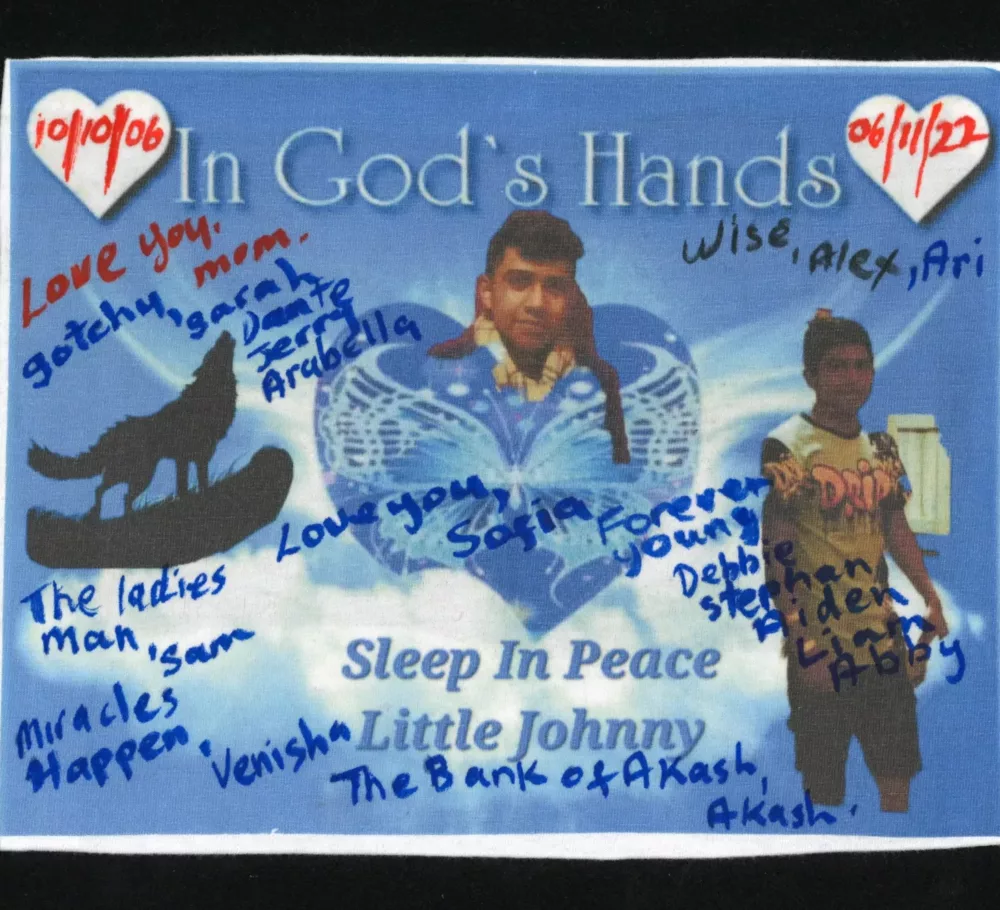 10/10/06
06/11/22
In God`s Hands
Love you.
mom.
Wise, Alex, Ari
gotchy, sarah
Dante
Jerry
Arabella
Love you,
Sofia
Forever
young
Debbie
stephan
Aiden
Liam
Abby
DRIP
The ladies
man, sam
Sleep In Peace
Little Johnny
Miracles
Happen, Venisha
The Bank of Akash,
Akash.